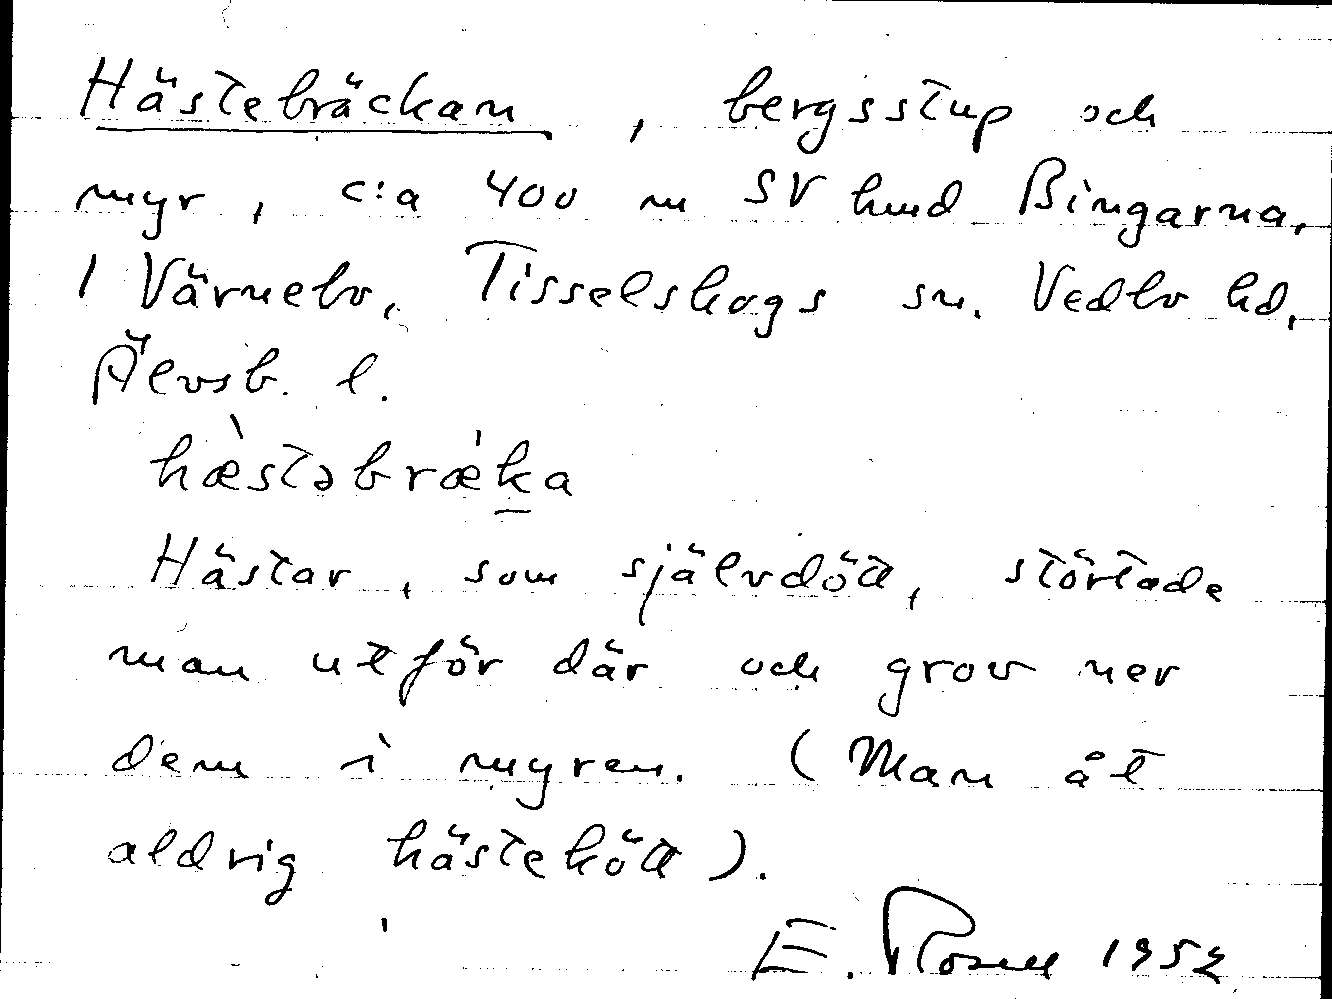 Hästebräckan, bergsstup och
myr, c:a 400 m SV hmd Bingarna,
1 Värnebo, Tisselskogs sn. Vedbo hd,
Älvsb. l.
hæ̀stəbræ̍ḵa
Hästar, som självdött, störtade
man utför där och grov ner
dem i myren. (Man åt
aldrig hästekött).
E. Rosell 1952